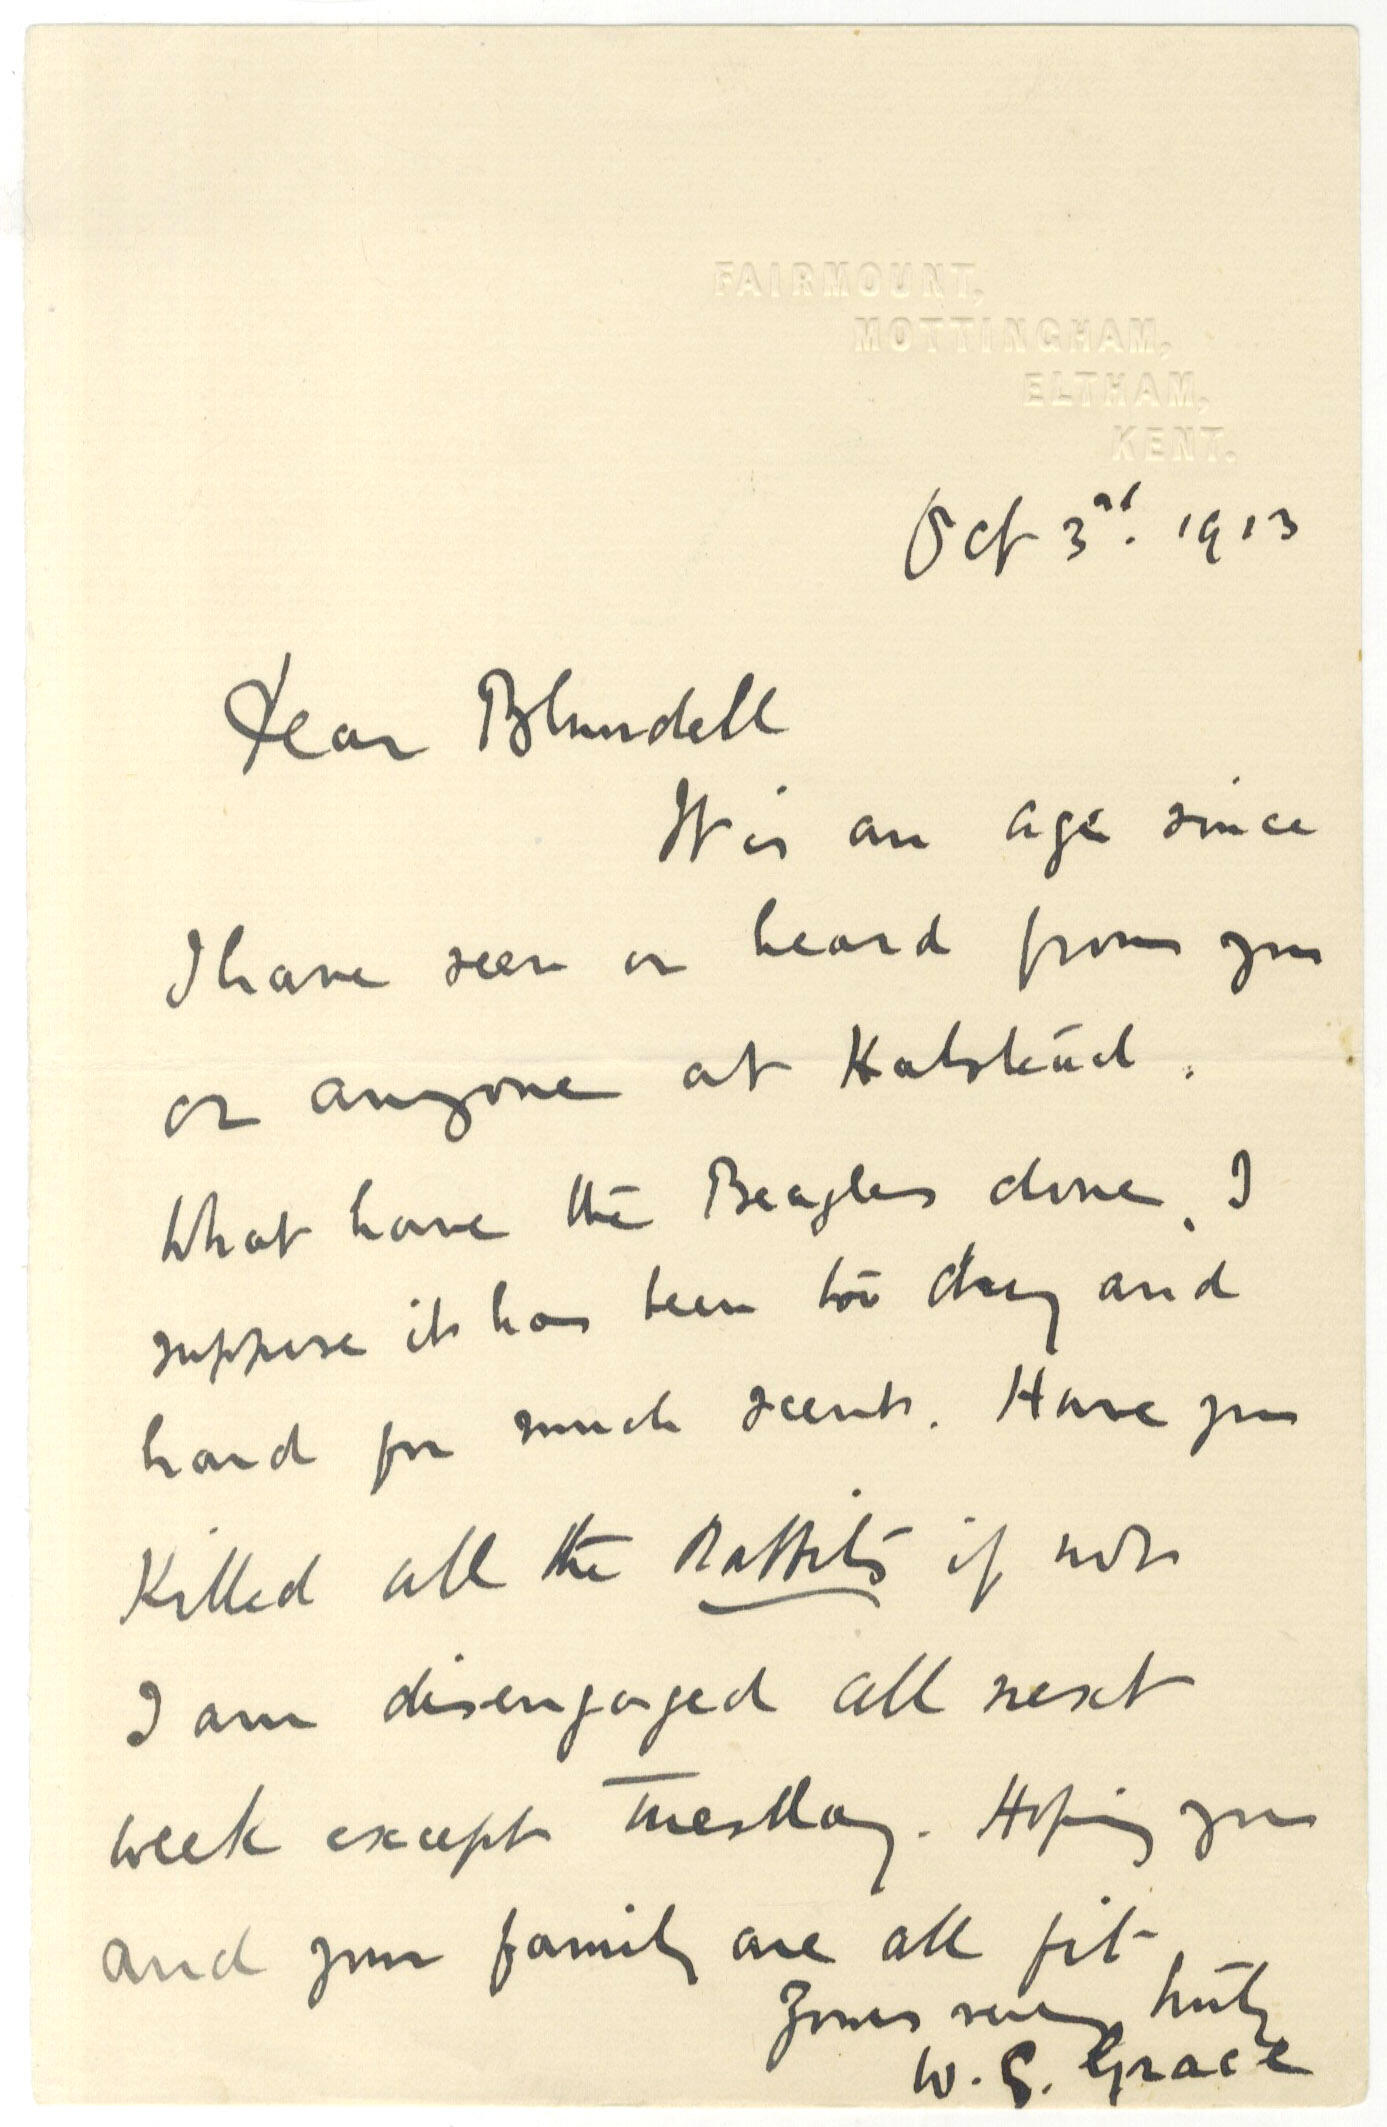 FAIRMOUNT,
MOTTINGHAM,
ELTHAM,
KENT.
Oct 3rd. 1913
Dear Blundell
It is an age since
I have seen or heard from you
or anyone at Halstead.
What have the Beagles done. I
suppose it has been too dry and
hard for much scent. Have you
Killed all the Rabbits if not
I am disengaged all next
week except Tuesday. Hoping you
and your family are all fit
Yours very truly
W. G. Grace